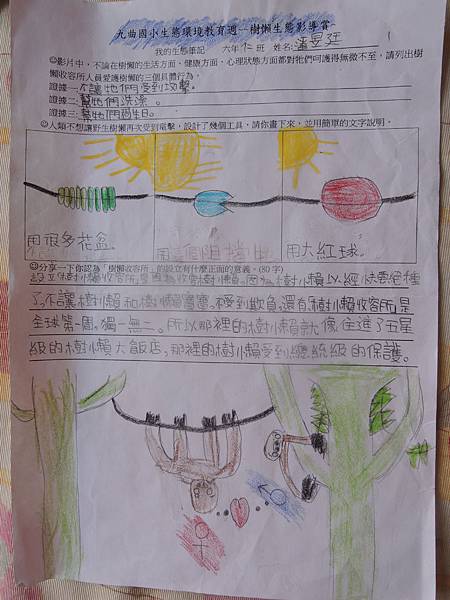 九曲國小生態環境教育週--樹懶生態影導賞
我的生態筆記 六年仁班 姓名:潘昱廷
◎影片中,不論在樹懶的生活方面、健康方面、心理狀態方面都對牠們呵護得無微不至,請列出樹
懶收容所人員愛護樹懶的三個具體行為。
證據一:不讓牠們受到攻擊。
證據二:幫牠們洗澡。
證據三:幫牠們過生日。
◎人類不想讓野生樹懶再次受到電擊,設計了幾個工具,請你畫下來,並用簡單的文字說明。
用很多花盆。 用 阻擋 用大紅球。
◎分享一下你認為「樹懶收容所」的設立有什麼正面的意義。(80字)
設立樹懶收容所是因為 樹懶。因為樹小賴以經快要絕種
了,不讓樹小賴和樹小賴寶寶,不受到欺負,還有樹小賴收容所,是
全球第一個,獨一無二。所以那裡的樹小賴就像住進了五星
級的樹小賴大飯店,那裡的樹小賴受到總統級的保護。